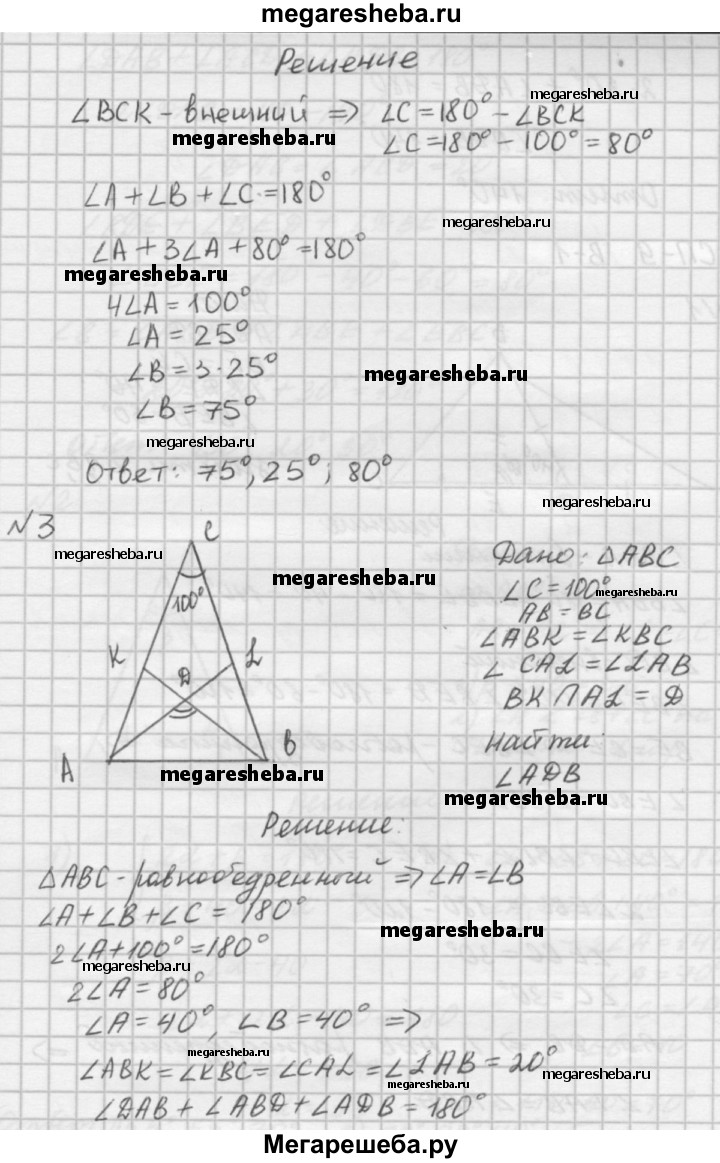 megaresheba.ru
Решение
megaresheba.ru
∠BCK - внешний => ∠C = 180° - ∠BCK
megaresheba.ru
∠C = 180° - 100° = 80°
∠A + ∠B + ∠C = 180°
megaresheba.ru
∠A + 3∠A + 80° = 180°
megaresheba.ru
4∠A = 100°
∠A = 25°
∠B = 3·25°
megaresheba.ru
∠B = 75°
megaresheba.ru
Ответ: 75°, 25°; 80°
megaresheba.ru
№3
C
megaresheba.ru
Дано: △ABC
megaresheba.ru
100°
∠C = 100°
megaresheba.ru
AB = BC
∠ABK = ∠KBC
K
L
D
∠CAL = ∠LAB
BK ∩ AL = D
A
B
Найти:
megaresheba.ru
∠ADB
megaresheba.ru
Решение:
△ABC - равнобедренный => ∠A = ∠B
∠A + ∠B + ∠C = 180°
megaresheba.ru
2∠A + 100° = 180°
megaresheba.ru
2∠A = 80°
∠A = 40°, ∠B = 40° =>
megaresheba.ru
∠ABK = ∠KBC = ∠CAL = ∠LAB = 20°
megaresheba.ru
megaresheba.ru
∠DAB + ∠ABD + ∠ADB = 180°
Мегарешеба.ру